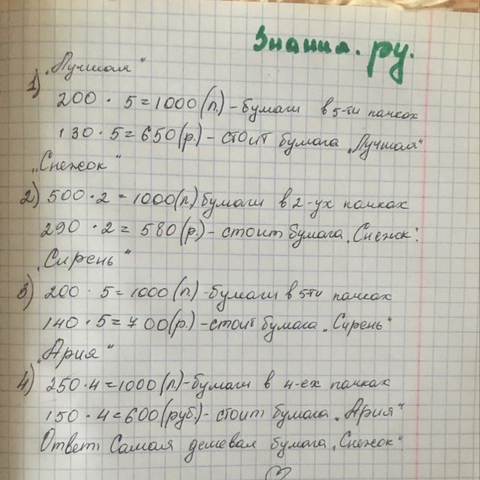 Знания.ру.
„Лучшая"
1)
200 · 5 = 1000 (л) - бумаги в 5-ти пачках
130 · 5 = 650 (р.) - стоит бумага „Лучшая"
„Снежок"
2) 500 · 2 = 1000 (л) бумаги в 2-ух пачках
290 · 2 = 580 (р.) - стоит бумага „Снежок".
„Сирень"
3) 200 · 5 = 1000 (л) - бумаги в 5ти пачках
140 · 5 = 700 (р.) - стоит бумага „Сирень"
„Ария"
4) 250 · 4 = 1000 (л) - бумаги в 4-ех пачках
150 · 4 = 600 (руб.) - стоит бумага „Ария"
Ответ: Самая дешевая бумага „Снежок"